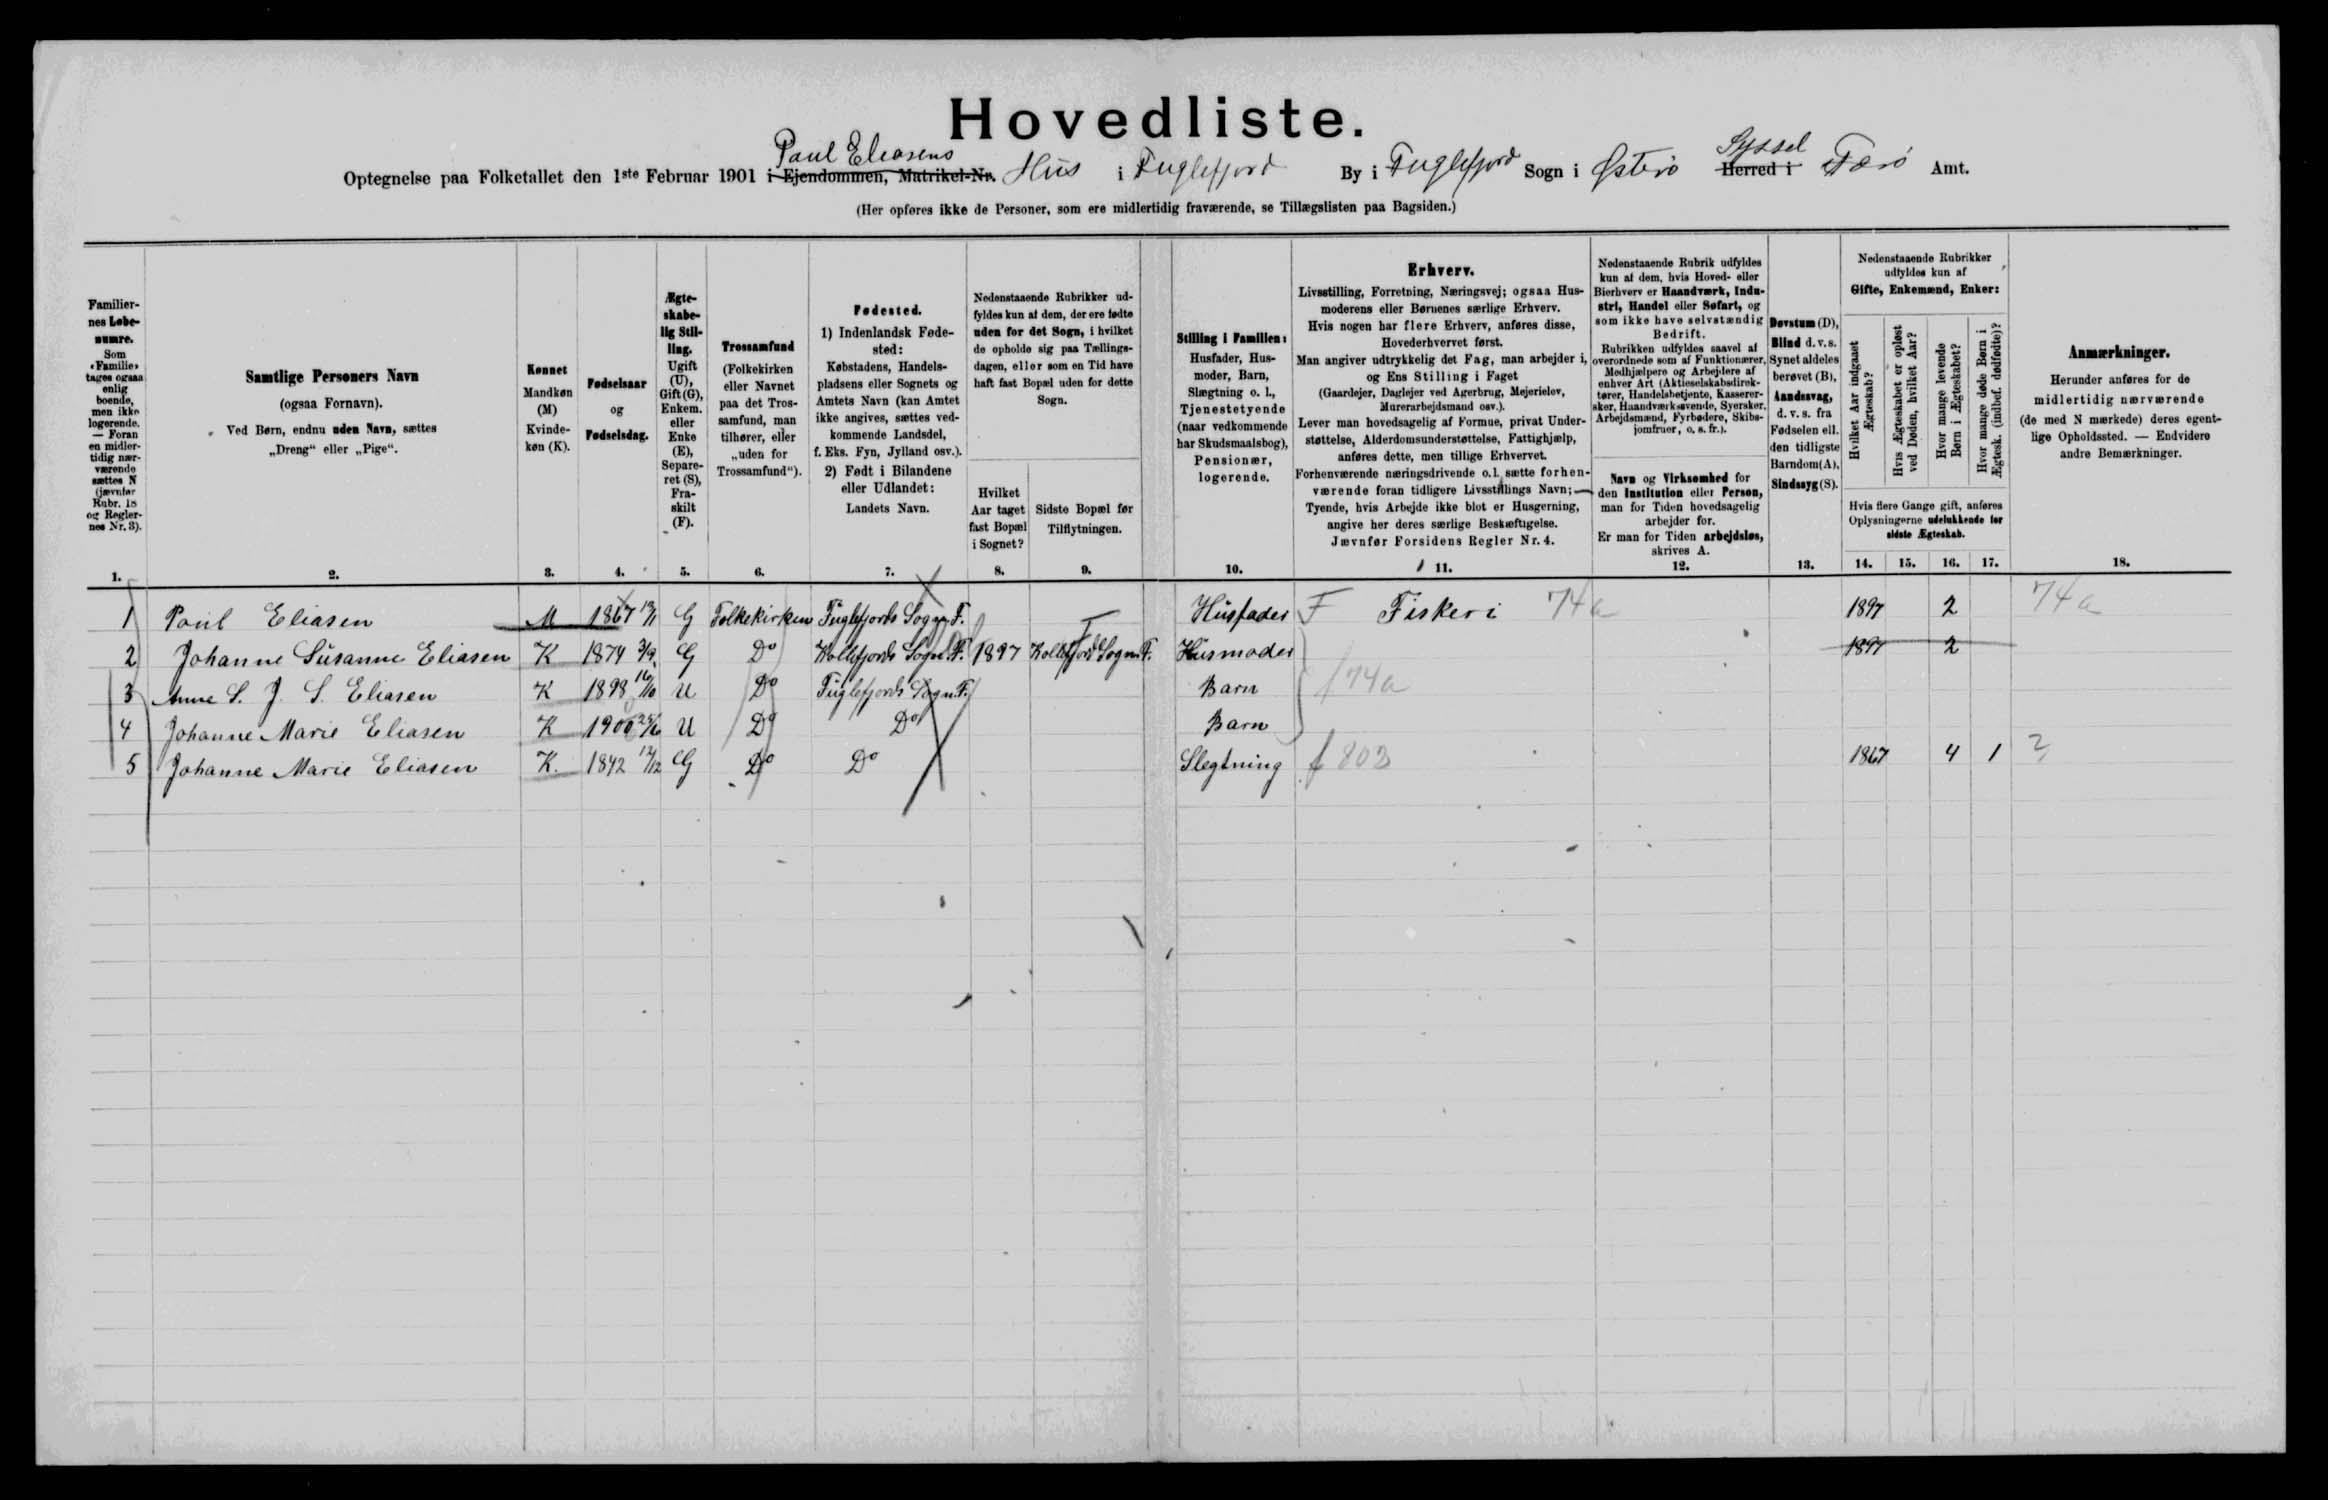 Hovedliste.
Paul Eliasens Syssel
Optegnelse paa Folketallet den 1ste Februar 1901 i Ejendommen, Matrikel-Nr. Hus i Fuglefjord By i Fuglefjord Sogn i Østerø Herred i Færø Amt.
(Her opføres ikke de Personer, som ere midlertidig fraværende, se Tillægslisten paa Bagsiden.)
Familier-
nes Løbe-
numre.
Som
«Familie»
tages ogsaa
enlig
boende,
men ikke
logerende.
— Foran
en midler-
tidig nær-
værende
sættes N
(jævnfør
Rubr. 18
og Regler-
nes Nr. 3).
1.
Samtlige Personers Navn
(ogsaa Fornavn).
Ved Børn, endnu uden Navn, sættes
„Dreng“ eller „Pige“.
2.
Kønnet
Mandkøn
(M)
Kvinde-
køn (K).
3.
Fødselsaar
og
Fødselsdag.
4.
Ægte-
skabe-
lig Stil-
ling.
Ugift
(U),
Gift (G),
Enkem.
eller
Enke
(E),
Separe-
ret (S),
Fra-
skilt
(F).
5.
Trossamfund
(Folkekirken
eller Navnet
paa det Tros-
samfund, man
tilhører, eller
„uden for
Trossamfund“).
6.
Fødested.
1) Indenlandsk Føde-
sted:
Købstadens, Handels-
pladsens eller Sognets og
Amtets Navn (kan Amtet
ikke angives, sættes ved-
kommende Landsdel,
f. Eks. Fyn, Jylland osv.).
2) Født i Bilandene
eller Udlandet:
Landets Navn.
7.
Nedenstaaende Rubrikker ud-
fyldes kun af dem, der ere fødte
uden for det Sogn, i hvilket
de opholde sig paa Tællings-
dagen, eller som en Tid have
haft fast Bopæl uden for dette
Sogn.
Hvilket
Aar taget
fast Bopæl
i Sognet?
8.
Sidste Bopæl før
Tilflytningen.
9.
Stilling i Familien:
Husfader, Hus-
moder, Barn,
Slægtning o. l.,
Tjenestetyende
(naar vedkommende
har Skudsmaalsbog),
Pensionær,
logerende.
10.
Erhverv.
Livsstilling, Forretning, Næringsvej; ogsaa Hus-
moderens eller Børnenes særlige Erhverv.
Hvis nogen har flere Erhverv, anføres disse,
Hovederhvervet først.
Man angiver udtrykkelig det Fag, man arbejder i,
og Ens Stilling i Faget
(Gaardejer, Daglejer ved Agerbrug, Mejerielev,
Murerarbejdsmand osv.).
Lever man hovedsagelig af Formue, privat Under-
støttelse, Alderdomsunderstøttelse, Fattighjælp,
anføres dette, men tillige Erhvervet.
Forhenværende næringsdrivende o.l. sætte forhen-
værende foran tidligere Livsstillings Navn;
Tyende, hvis Arbejde ikke blot er Husgerning,
angive her deres særlige Beskæftigelse.
Jævnfør Forsidens Regler Nr. 4.
11.
Nedenstaaende Rubrik udfyldes
kun af dem, hvis Hoved- eller
Bierhverv er Haandværk, Indu-
stri, Handel eller Søfart, og
som ikke have selvstændig
Bedrift.
Rubrikken udfyldes saavel af
overordnede som af Funktionærer,
Medhjælpere og Arbejdere af
enhver Art (Aktieselskabsdirek-
tører, Handelsbetjente, Kasserer-
sker, Haandværkssvende, Syersker,
Arbejdsmænd, Fyrbødere, Skibs-
jomfruer, o. s. fr.).
Navn og Virksomhed for
den Institution eller Person,
man for Tiden hovedsagelig
arbejder for.
Er man for Tiden arbejdsløs,
skrives A.
12.
Døvstum (D),
Blind d. v. s.
Synet aldeles
berøvet (B),
Aandssvag,
d. v. s. fra
Fødselen ell.
den tidligste
Barndom (A),
Sindssyg (S).
13.
Nedenstaaende Rubrikker
udfyldes kun af
Gifte, Enkemænd, Enker:
Hvilket Aar indgaaet
Ægteskab?
Hvis Ægteskabet er opløst
ved Døden, hvilket Aar?
Hvor mange levende
Børn i Ægteskabet?
Hvor mange døde Børn i
Ægtesk. (indbef. dødfødte)?
Hvis flere Gange gift, anføres
Oplysningerne udelukkende for
sidste Ægteskab.
14. 15. 16. 17.
Anmærkninger.
Herunder anføres for de
midlertidig nærværende
(de med N mærkede) deres egent-
lige Opholdssted. — Endvidere
andre Bemærkninger.
18.
1 Paul Eliasen M 1867 G Folkekirken Fuglefjords Sogn F. Husfader F Fiskeri 74a 1897 2 74a
2 Johanne Susanne Eliasen K 1874 3/9 G Do Kollefjords Sogn F. 1897 Kollefjord Sogn F. Husmoder 1897 2
3 Anne S. J. S. Eliasen K 1898 16/10 U Do Fuglefjords Sogn F. Barn f 74a
4 Johanne Marie Eliasen K 1900 25/6 U Do Do Barn
5 Johanne Marie Eliasen K. 1842 12/12 G Do Do Slegtning f 803 1867 4 1 2